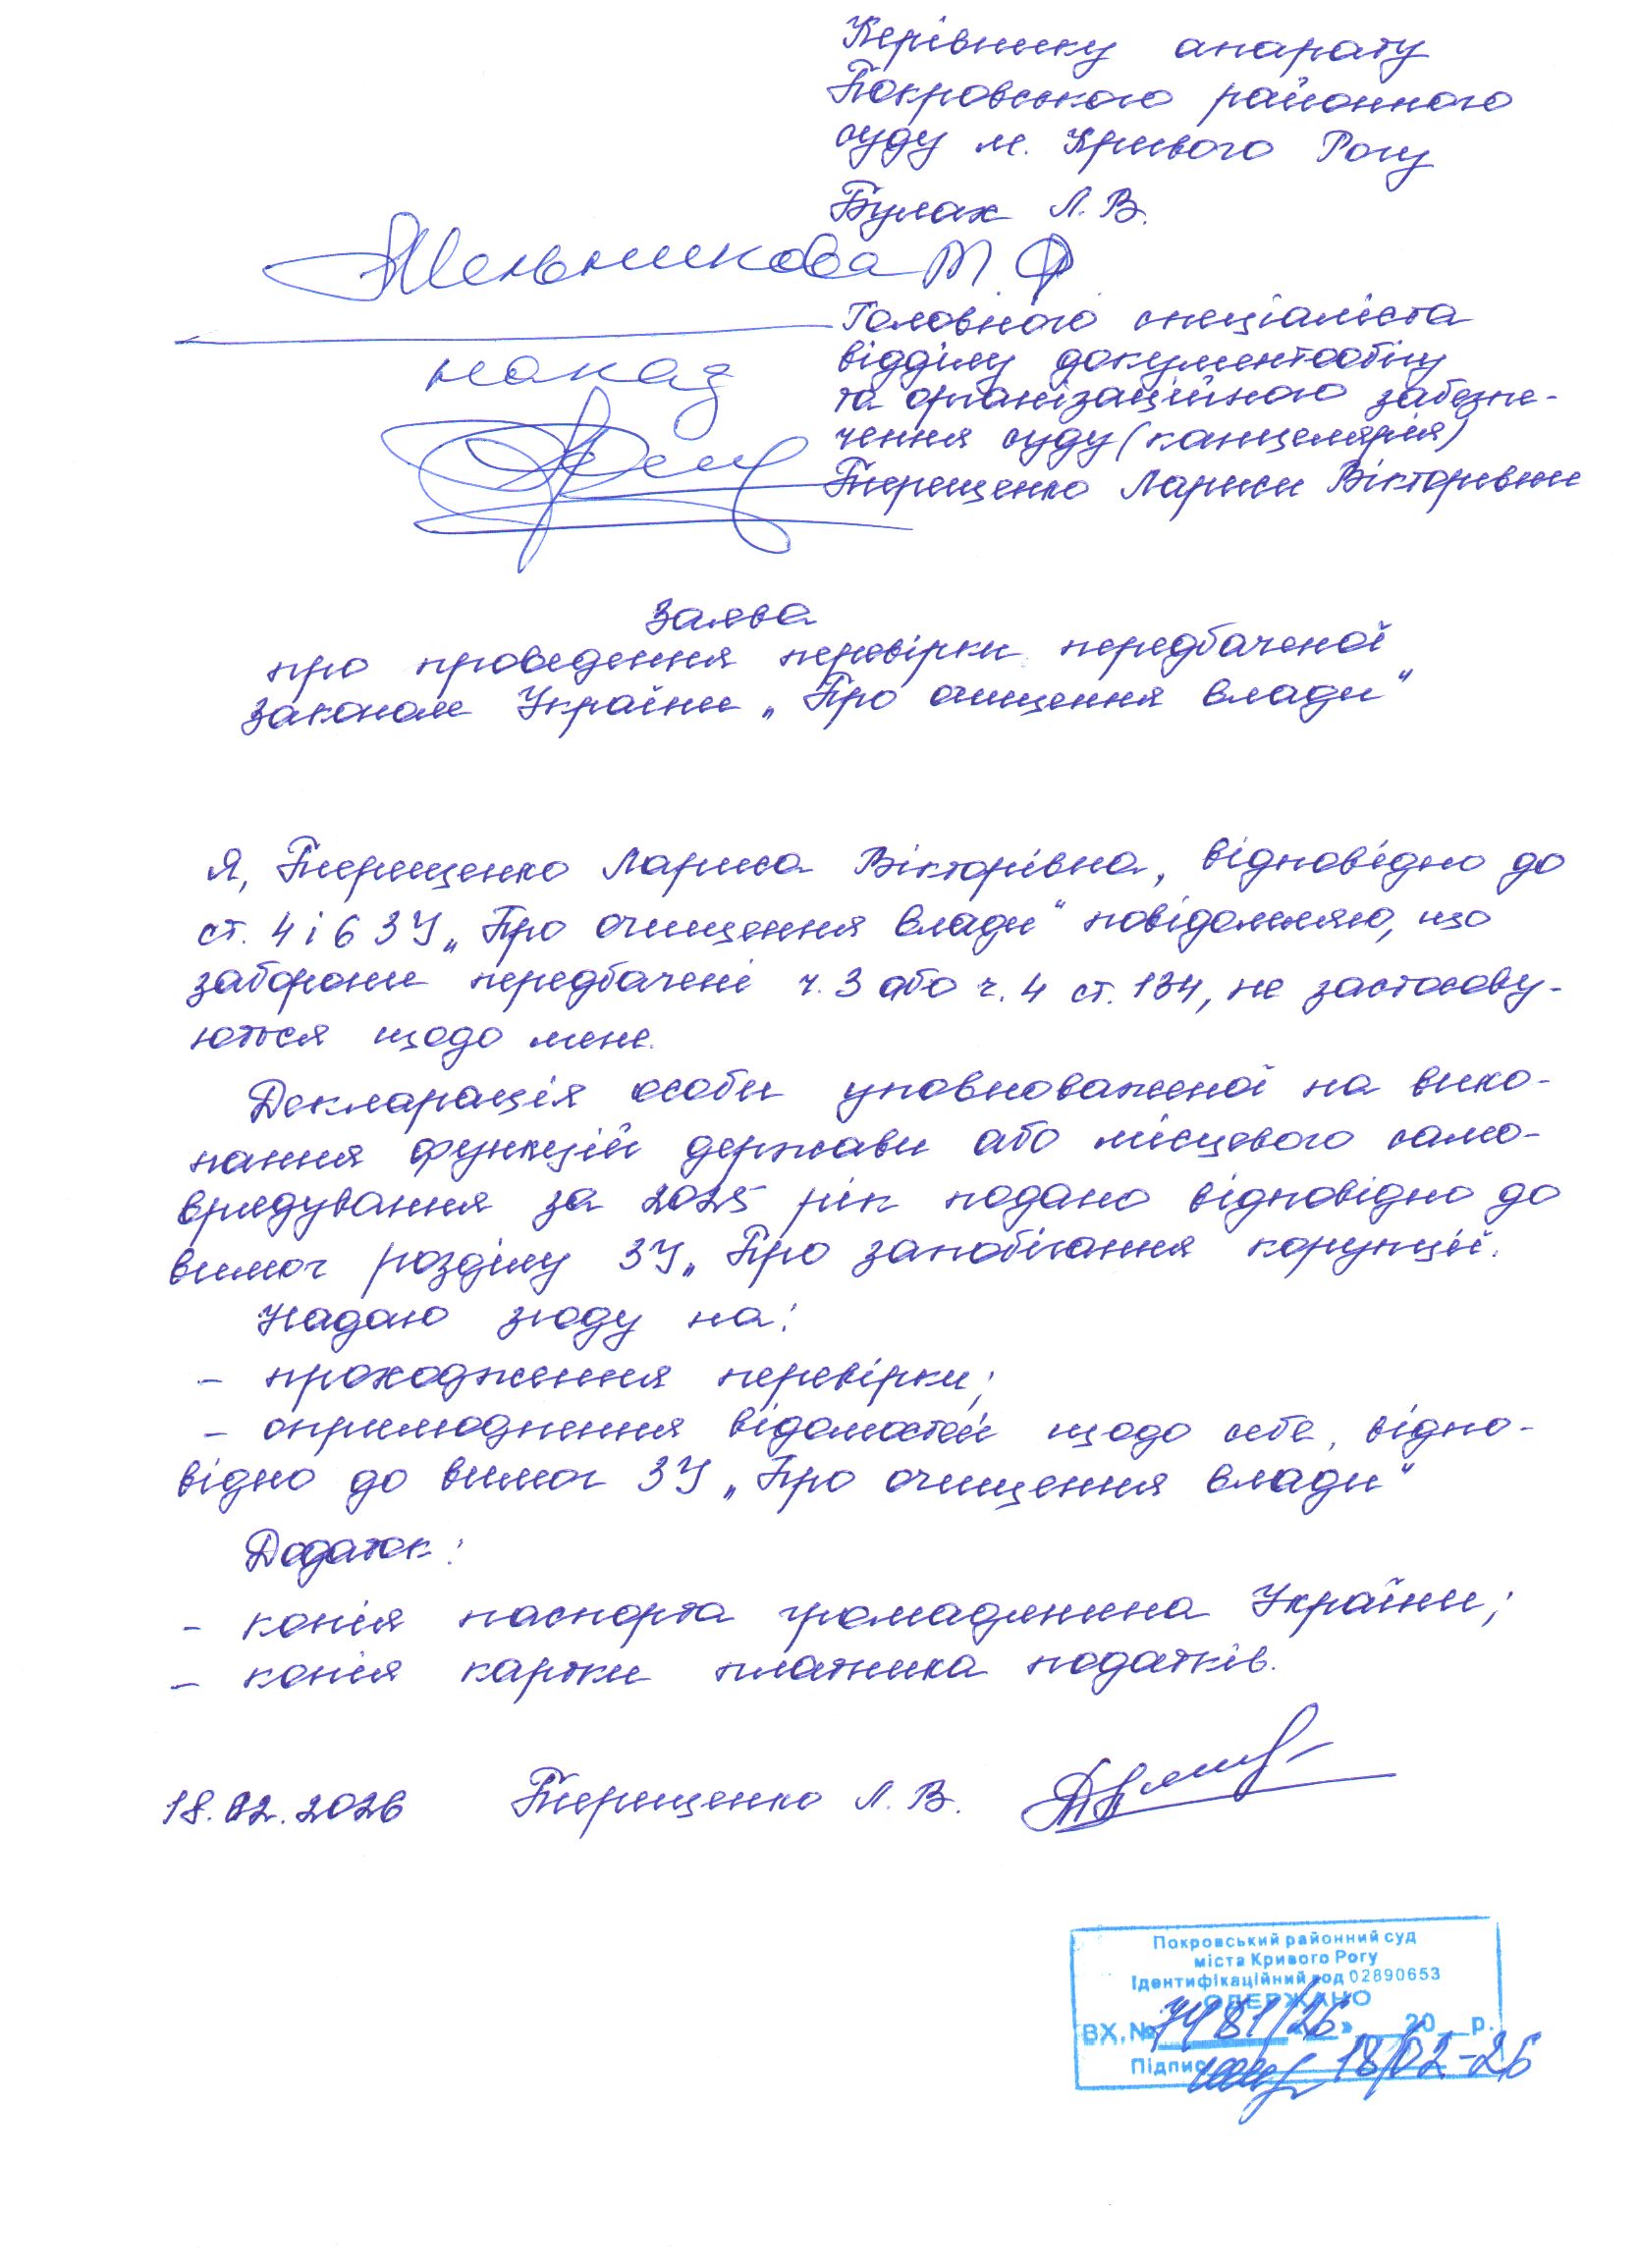 Керівнику апарату
Покровського районного
суду м. Кривого Рогу
Булах Л. В.
Мельникова М. Ф.
Головного спеціаліста
відділу документообігу
та організаційного забезпе-
чення суду (канцелярія)
Терещенко Лариси Вікторівни
наказ
Заява
про проведення перевірки передбаченої
законом України „Про очищення влади"
Я, Терещенко Лариса Вікторівна, відповідно до
ст. 4 і 6 ЗУ „Про очищення влади" повідомляю, що
заборони передбачені ч. 3 або ч. 4 ст. 134, не застосову-
ються щодо мене.
Декларація особи уповноваженої на вико-
нання функцій держави або місцевого само-
врядування за 2025 рік подано відповідно до
вимог розділу ЗУ „Про запобігання корупції.
Надаю згоду на:
- проходження перевірки;
- оприлюднення відомостей щодо себе, відпо-
відно до вимог ЗУ „Про очищення влади"
Додаток:
- копія паспорта громадянина України;
- копія картки платника податків.
18.02.2026 Терещенко Л. В.
Покровський районний суд
міста Кривого Рогу
Ідентифікаційний код 02890653
ОДЕРЖАНО
ВХ. № /26 » 20 р.
Підпис 18/02-26